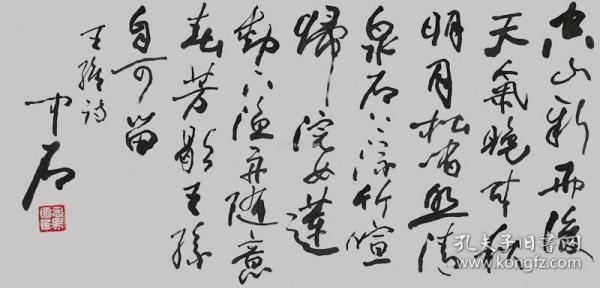 空山新雨後
天氣晚來秋
明月松間照清
泉石上流竹喧
歸浣女蓮
動下漁舟隨意
春芳歇王孫
自可留
王維詩
中石
孔夫子旧书网
www.kongfz.com